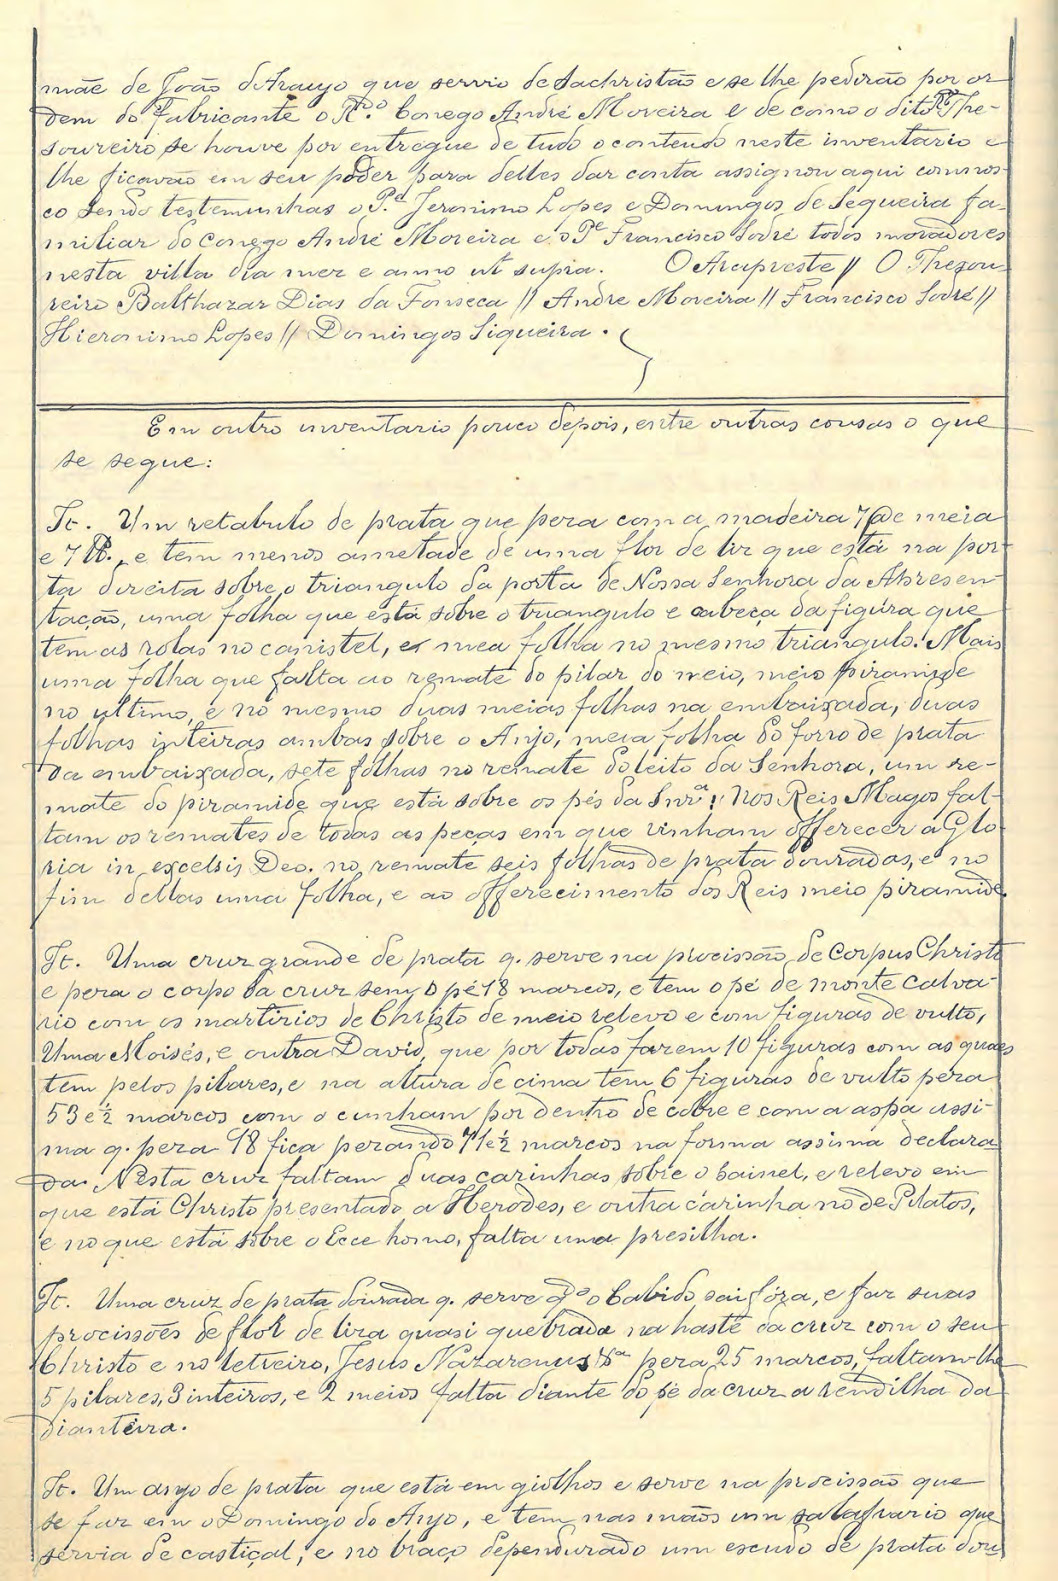 mãe de João d'Araujo que servio de Sachristão e se lhe pedirão por or
dem do Fabricante o R.do Conego André Moreira e de como o dito R.do The-
soureiro se houve por entregue de tudo o contendo neste inventario e
lhe ficavão em seu poder para delles dar conta assignou aqui comnos-
co sendo testemunhas o P.e Jeronimo Lopes e Domingos de Sequeira fa-
miliar do Conego André Moreira e o P.e Francisco Sodré todos moradores
nesta villa dia mez e anno ut supra. O Arcipreste // O Thezou-
reiro Balthazar Dias da Fonseca // Andre Moreira // Francisco Sodré //
Hieronimo Lopes // Domingos Siqueira.
Em outro inventario pouco depois, entre outras cousas o que
se segue:
It. Um retabulo de prata que peza com a madeira 7 @ de meia
e 7 lb., e tem menos ametade de uma flor de liz que está na por
ta direita sobre o triangulo da porta de Nossa Senhora da Apresen
tação, uma folha que está sobre o triangulo e cabeça da figura que
tem as rolas no canistel, e mea folha no mesmo triangulo. Mais
uma folha que falta ao remate do pilar do meio, meio piramide
no ultimo, e no mesmo duas meias folhas na embaixada, duas
folhas inteiras ambas sobre o Anjo, meia folha do forro de prata
da embaixada, sete folhas no remate do leito da Senhora, um re-
mate do piramide que está sobre os pés da Snr.a; Nos Reis Magos fal-
tam os remates de todas as peças em que vinham offerecer a Glo
ria in excelsis Deo. no remate seis folhas de prata douradas, e no
fim dellas uma folha, e ao offerecimento dos Reis meio piramide.
It. Uma cruz grande de prata q. serve na procissão de Corpus Christi
e peza o corpo da cruz sem o pé 18 marcos, e tem o pé de monte Calva-
rio com os martirios de Christo de meio relevo e com figuras de vulto,
Uma Moisés, e outra David, que por todas fazem 10 figuras com as quaes
tem pelos pilares, e na altura de cima tem 6 figuras de vulto peza
53 e ½ marcos com o cunham por dentro de cobre e com a aspa assi-
ma q. peza 18 fica pezando 71 e ½ marcos na forma assima declara
da. Nesta cruz faltam duas carinhas sobre o bainel, e relevo em
que está Christo presentado a Herodes, e outra carinha no de Pilatos,
e no que está sobre o Ecce homo, falta uma presilha.
It. Uma cruz de prata dourada q. serve q.do o Cabido sai fóra, e faz suas
procissões de flor de liza quasi quebrada na haste da cruz com o seu
Christo e no letreiro, Jesus Nazarenus peza 25 marcos, faltam-lhe
5 pilares, 3 inteiros, e 2 meios falta diante do pé da cruz a rendilha da
dianteira.
It. Um anjo de prata que está em giolhos e serve na procissão que
se faz em o Domingo do Anjo, e tem nas mãos um que
servia de castiçal, e no braço dependurado um escudo de prata dou